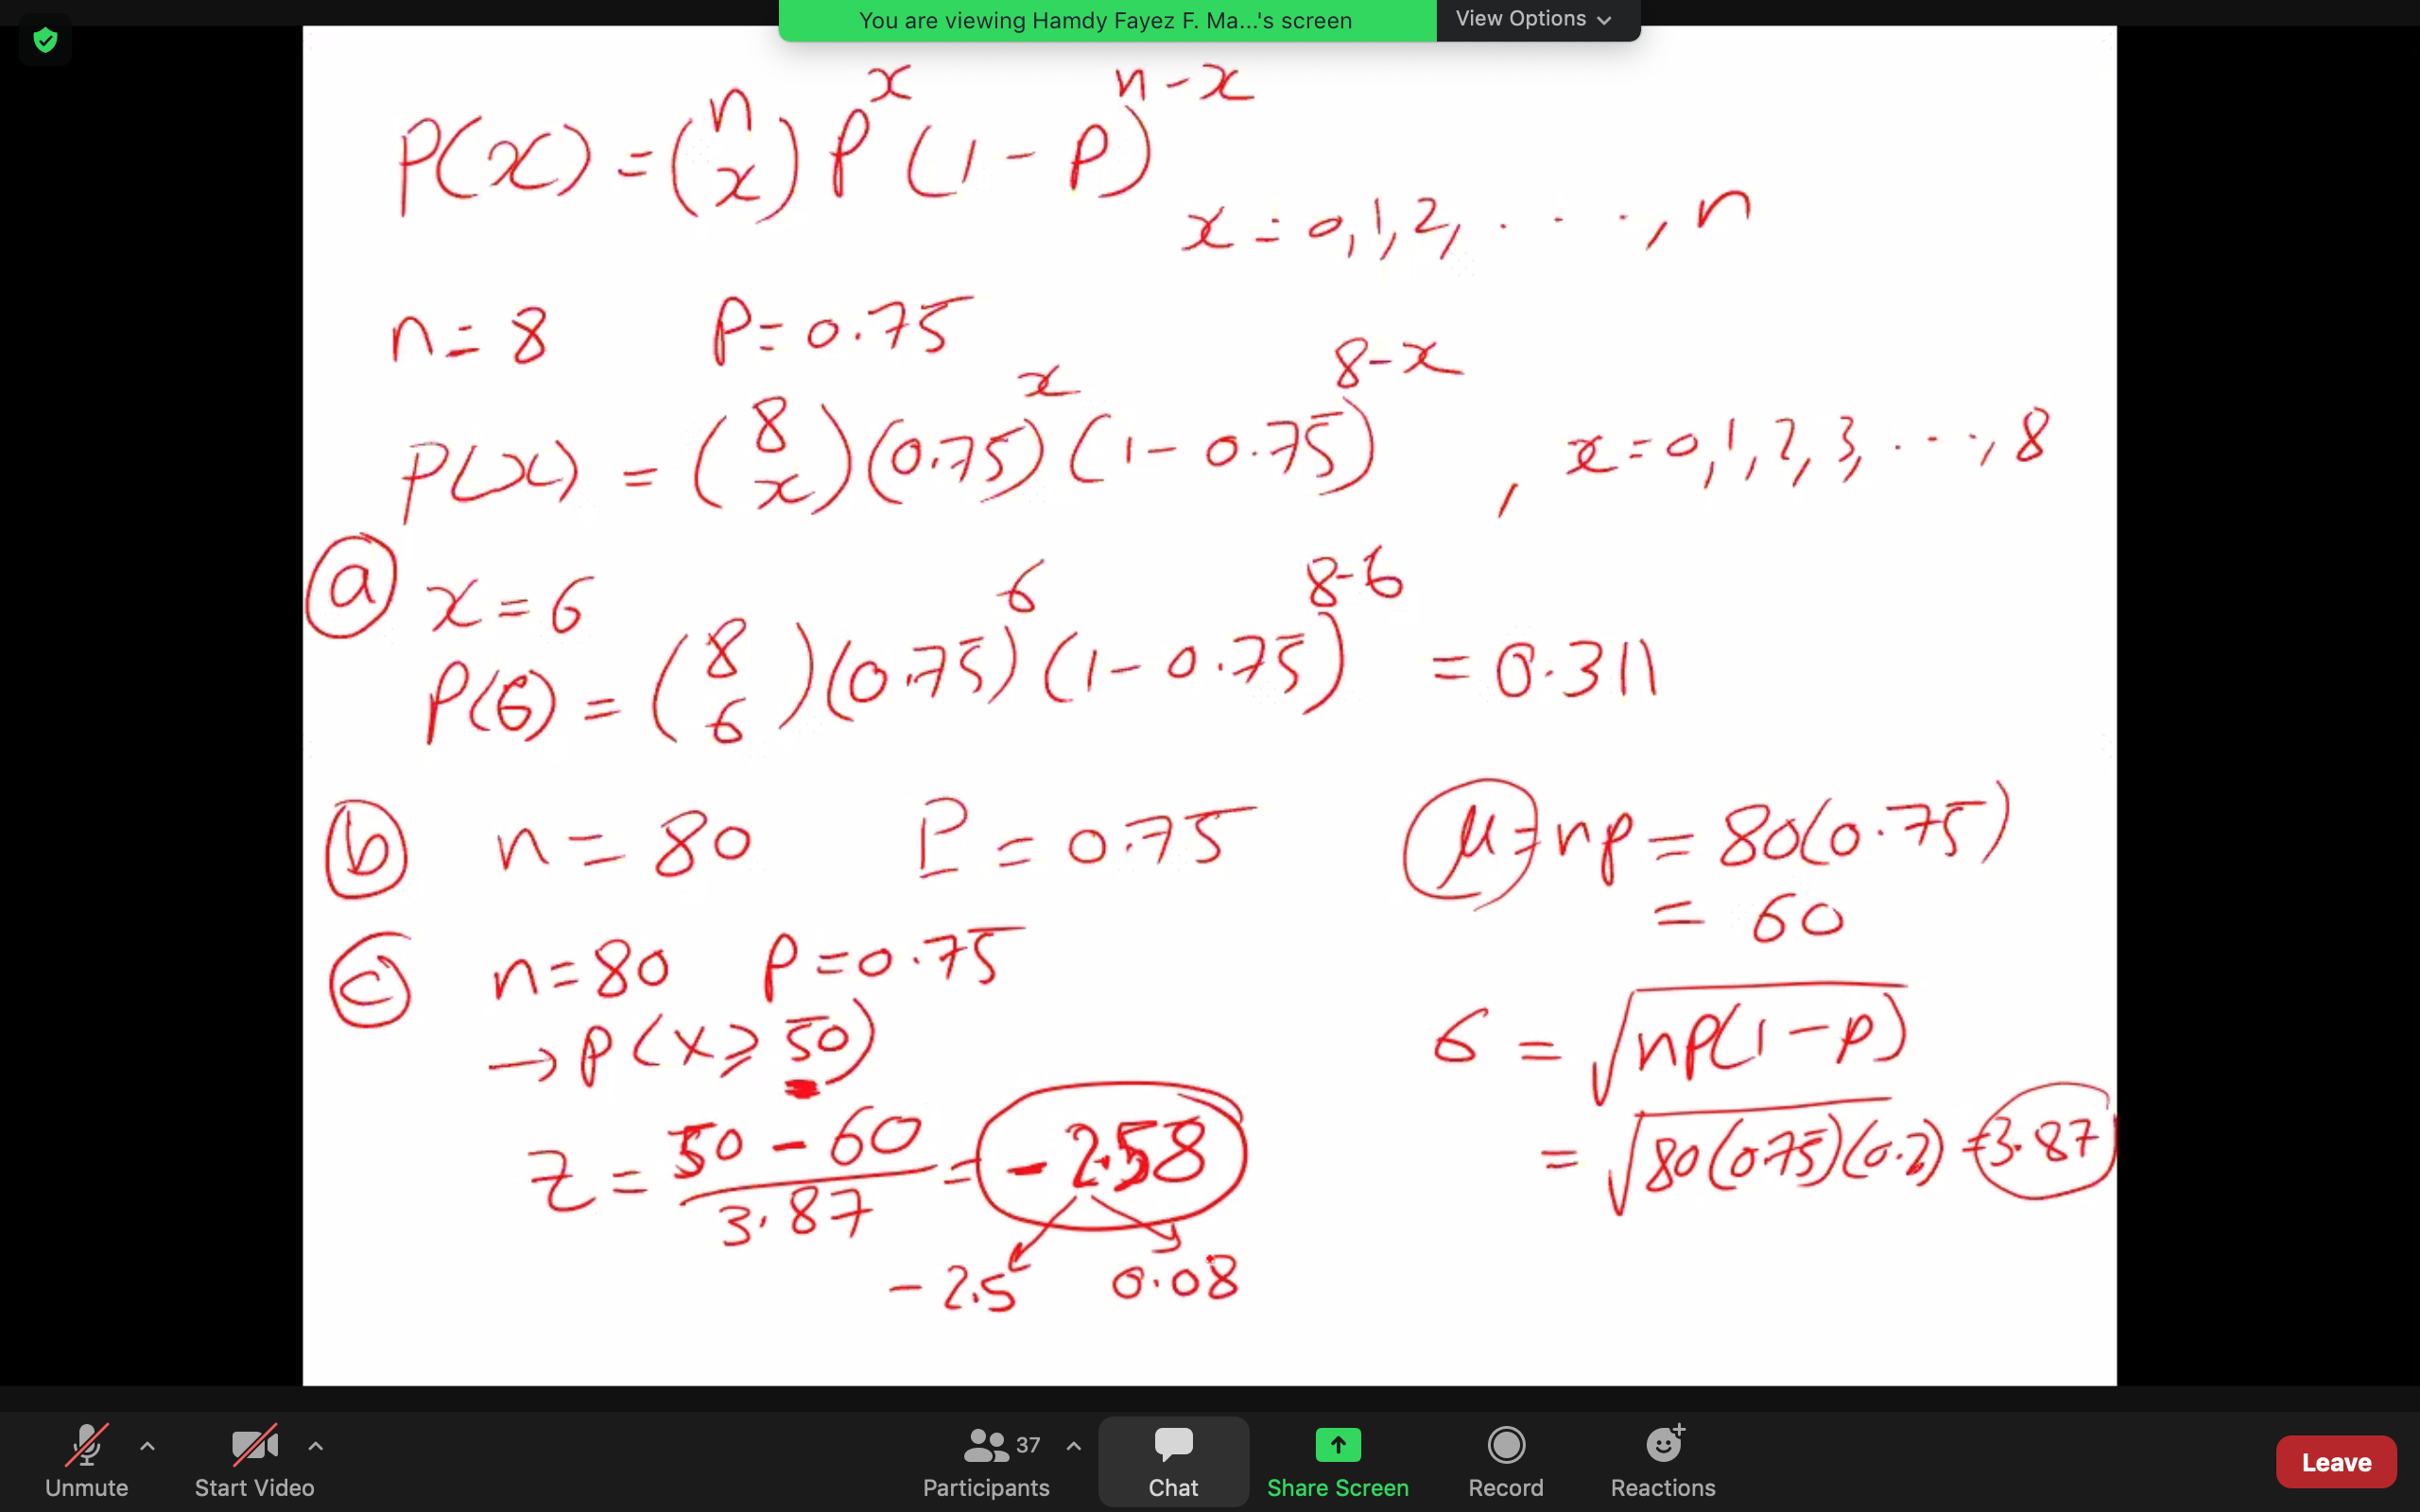 You are viewing Hamdy Fayez F. Ma...'s screen View Options
P(x) = (n x) p^x (1 - p)^n-x
x = 0, 1, 2, . . . ., n
n = 8 P = 0.75
P(x) = (8 x) (0.75)^x (1 - 0.75)^8-x , x = 0, 1, 2, 3, . . . , 8
a x = 6
P(6) = (8 6) (0.75)^6 (1 - 0.75)^8-6 = 0.311
b n = 80 P = 0.75 μ = np = 80(0.75)
= 60
c n = 80 p = 0.75
→ p(x ≥ 50) σ = √np(1-p)
z = 50 - 60 / 3.87 = -2.58 = √80(0.75)(0.2) = 3.87
-2.5 0.08
Unmute Start Video 37 Participants Chat Share Screen Record Reactions Leave